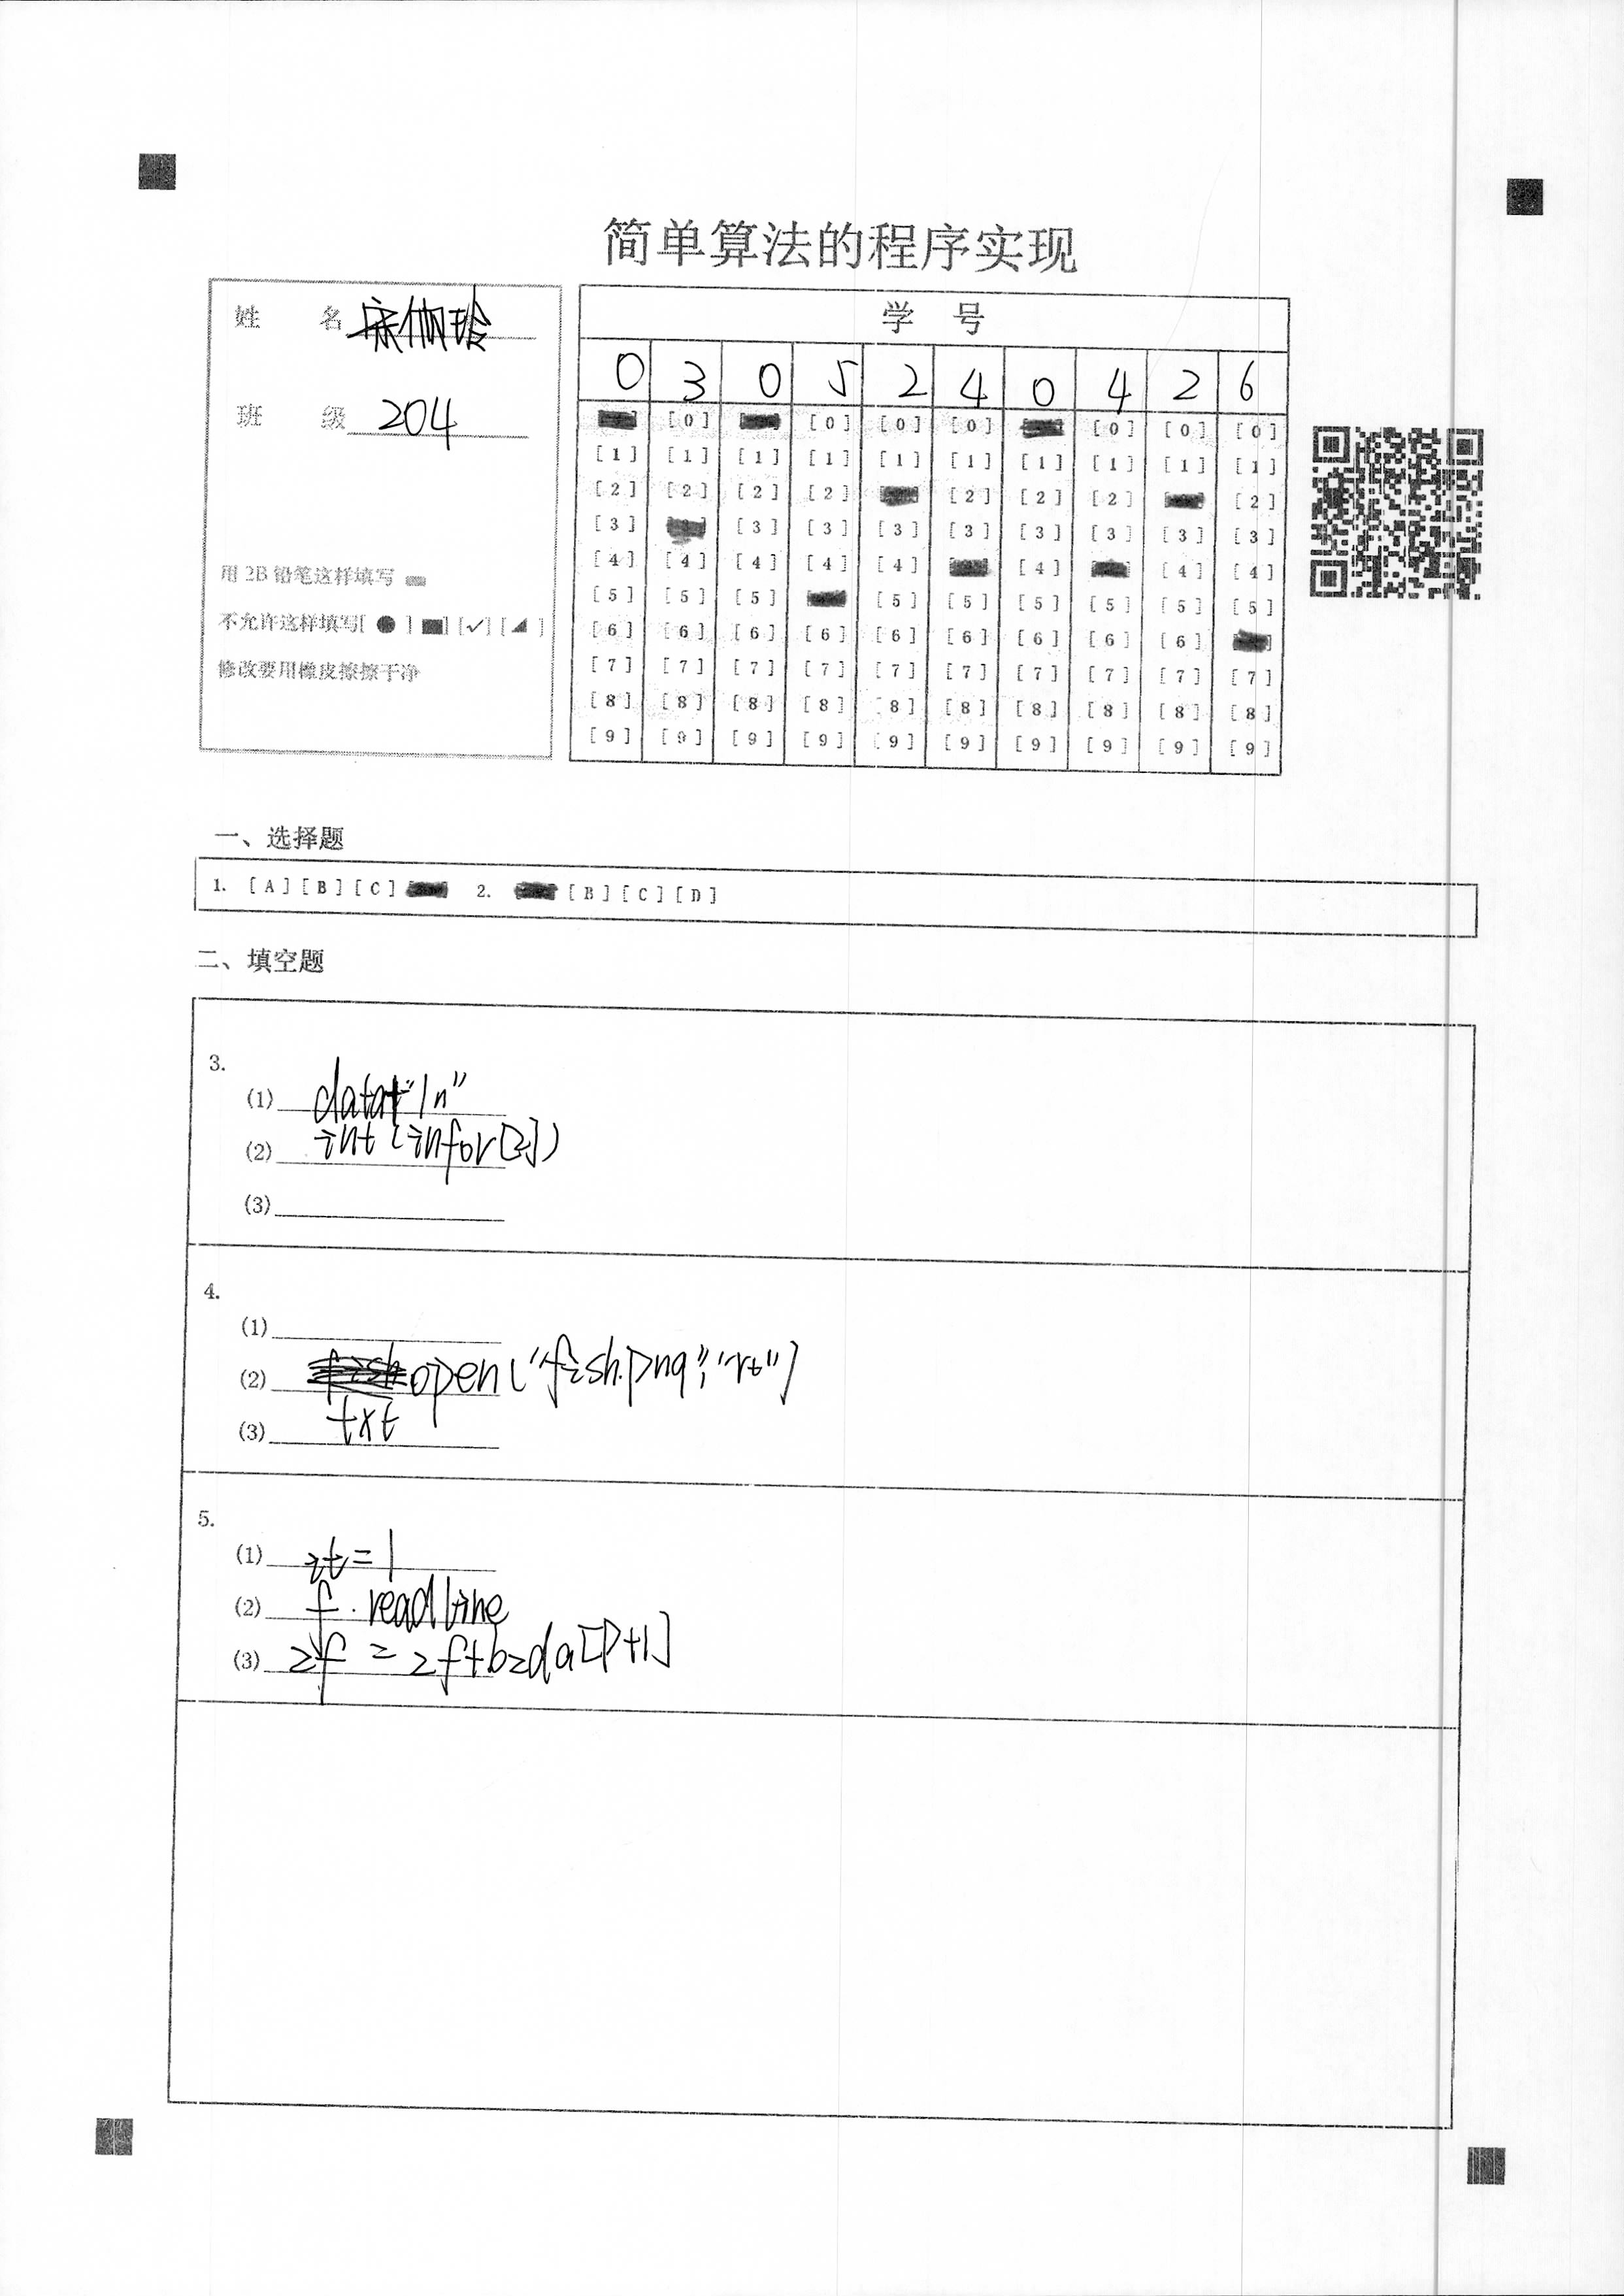 简单算法的程序实现
姓 名
班 级 204
用 2B 铅笔这样填写
不允许这样填写[ ● ] [■] [✓] [◢ ]
修改要用橡皮擦擦干净
学 号
0 3 0 5 2 4 0 4 2 6
[0] [0] [0] [0] [0] [0] [0]
[1] [1] [1] [1] [1] [1] [1] [1] [1] [1]
[2] [2] [2] [2] [2] [2] [2] [2]
[3] [3] [3] [3] [3] [3] [3] [3] [3]
[4] [4] [4] [4] [4] [4] [4] [4]
[5] [5] [5] [5] [5] [5] [5] [5] [5]
[6] [6] [6] [6] [6] [6] [6] [6] [6]
[7] [7] [7] [7] [7] [7] [7] [7] [7] [7]
[8] [8] [8] [8] [8] [8] [8] [8] [8] [8]
[9] [9] [9] [9] [9] [9] [9] [9] [9] [9]
一、选择题
1. [A] [B] [C] 2. [B] [C] [D]
二、填空题
3.
(1) data+"\n"
(2) int(infor[2])
(3)
4.
(1)
(2) open("fish.png","rt")
(3) txt
5.
(1) zt=1
(2) f.readline
(3) zf=zf+bzda[p+1]